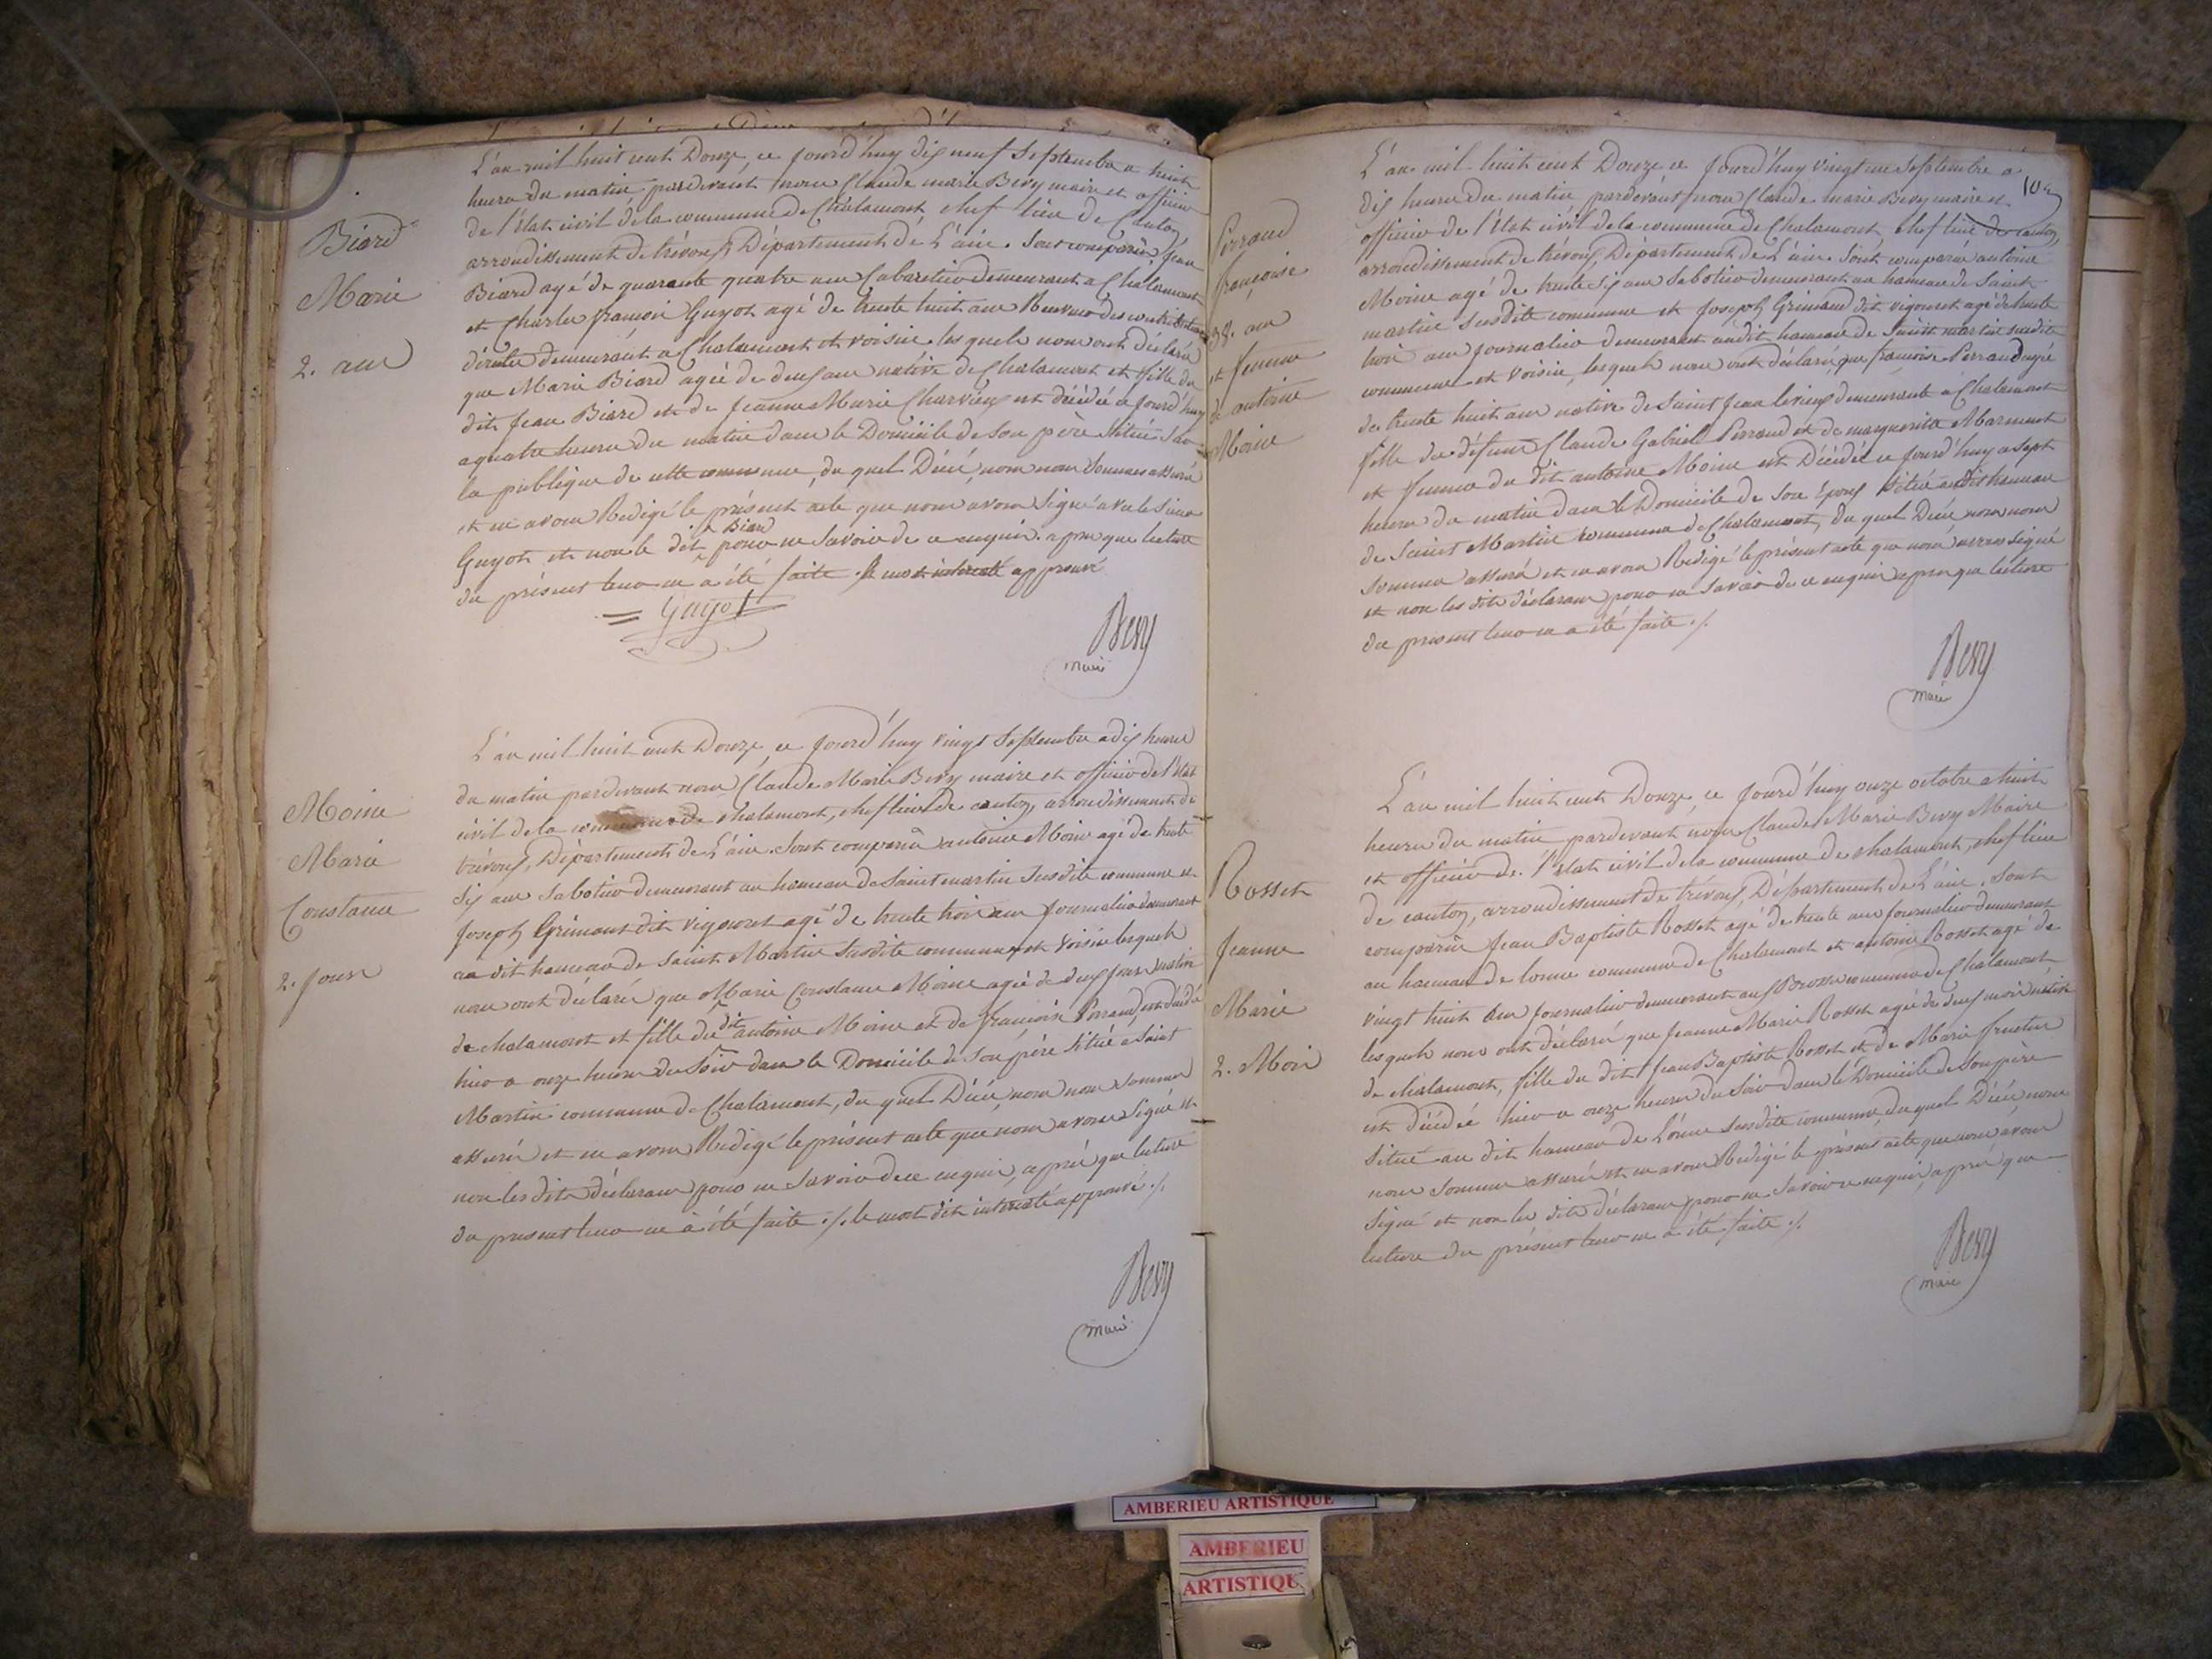 Biard
Marie
2. ans
L'an mil huit cent Douze, ce jourd'huy dix neuf Septembre a huit
heures du matin pardevant nous Claude marie Bevy maire et officier
de l'état civil de la commune de Chalamont, chef lieu de Canton
arrondissement de trévoux, Département de L'ain. Sont comparus Jean
Biard agé de quarante quatre ans Cabaretier demeurant a Chalamont
et Charles françois Guyot agé de trente huit ans Receveur des contributions
directes demeurant a Chalamont et voisin lesquels nous ont déclaré
que Marie Biard agée de deux ans native de Chalamont et fille du
dit Jean Biard et de Jeanne Marie Charvieux est décédée ce jourd'huy
a quatre heures du matin dans le Domicile de son père situé sur
la publique de cette commune, du quel Décé, nous nous sommes assuré
et en avons Redigé le présent acte que nous avons Signé avec le Sieur
Guyot et non le dit Biard pour ne Savoir de ce enquis apres que lecture
du présent leur en a été faite. le mot intercité approuvé
Guyot
Bevy
maire
Moine
Marie
Constance
2. jours
L'an mil huit cent Douze, ce jourd'huy vingt Septembre a dix heures
du matin pardevant nous Claude Marie Bevy maire et officier de l'état
civil de la commune de chalamont, chef lieu de canton, arrondissement de
trévoux, Département de L'ain. Sont comparus antoine Moine agé de trente
six ans Sabotier demeurant au hameau de Saint martin Susdite commune et
Joseph Grimaut dit vigouret agé de trente trois ans journalier demeurant
au dit hameau de Saint Martin Susdite commune et voisin lesquels
nous ont déclaré que Marie Constance Moine agée de deux jours native
de chalamont et fille du dit antoine Moine et de françoise Perraud, est décédée
hier a onze heures du Soir dans le Domicile de Son père Situé a Saint
Martin commune de Chalamont, du quel Décé, nous nous sommes
assuré et en avons Redigé le présent acte que nous avons Signé et
non les dits déclarans pour ne Savoir de ce enquis, après que lecture
du present leur en a été faite ./. le mot dit intercité approuvé ./.
Bevy
maire
10
Perraud
françoise
38. ans
et femme
de antoine
Moine
L'an mil huit cent Douze ce jourd'huy vingt un Septembre a
dix heures du matin pardevant nous Claude marie Bevy maire et
officier de l'état civil de la commune de Chalamont chef lieu de canton,
arrondissement de trévoux, Département de L'ain. Sont comparus antoine
Moine agé de trente six ans Sabotier demeurant au hameau de Saint
martin susdite commune et Joseph Grimaud dit vigouret agé de trente
trois ans journalier demeurant audit hameau de Saint martin susdite
commune et voisin, lesquels nous ont déclaré que françoise Perraud agée
de trente huit ans native de Saint Jean le vieux demeurante a Chalamont
fille du défunt Claude Gabriel Perraud et de marguerite Marmont
et femme du dit antoine Moine est Décédée ce jourd'huy a sept
heures du matin dans le Domicile de son époux situé au dit hameau
de Saint Martin commune de Chalamont, du quel Décé nous nous
sommes assuré et en avons Redigé le présent acte que nous avons signé
et non les dits déclarans pour ne savoir de ce enquis apres que lecture
du present leur en a été faite ./.
Bevy
maire
Rosset
Jeanne
Marie
2. Mois
L'an mil huit cent Douze, ce jourd'huy onze octobre a huit
heures du matin pardevant nous Claude Marie Bevy Maire
et officier de l'état civil de la commune de chalamont, chef lieu
de canton, arrondissement de trévoux, Département de L'ain. Sont
comparus Jean Baptiste Rosset agé de trente ans journalier demeurant
au hameau de lonne commune de Chalamont et antoine Rosset agé de
vingt huit ans journalier demeurant aux Brosses commune de Chalamont
lesquels nous ont déclaré que Jeanne Marie Rosset agée de deux mois native
de chalamont, fille du dit Jean Baptiste Rosset et de Marie
est décédée hier a onze heures du Soir dans le Domicile de Son père
Situé au dit hameau de Lonne susdite commune, du quel Décé nous
nous sommes assuré et en avons Redigé le présent acte que nous avons
Signé et non les dits déclarans pour ne Savoir ce enquis, après que
lecture du présent leur en a été faite ./.
Bevy
maire
AMBERIEU ARTISTIQUE
AMBERIEU
ARTISTIQUE